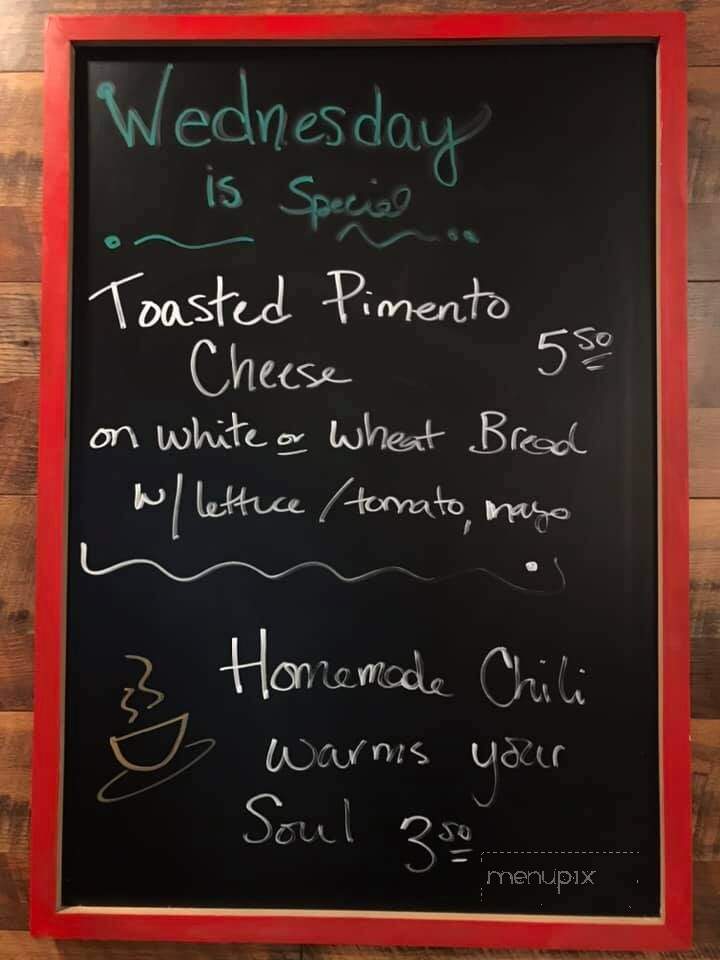 Wednesday
is Special
Toasted Pimento
Cheese 5 50
on white or wheat Bread
w/ lettuce / tomato, mayo
Homemade Chili
warms your
Soul 3 50
menupix